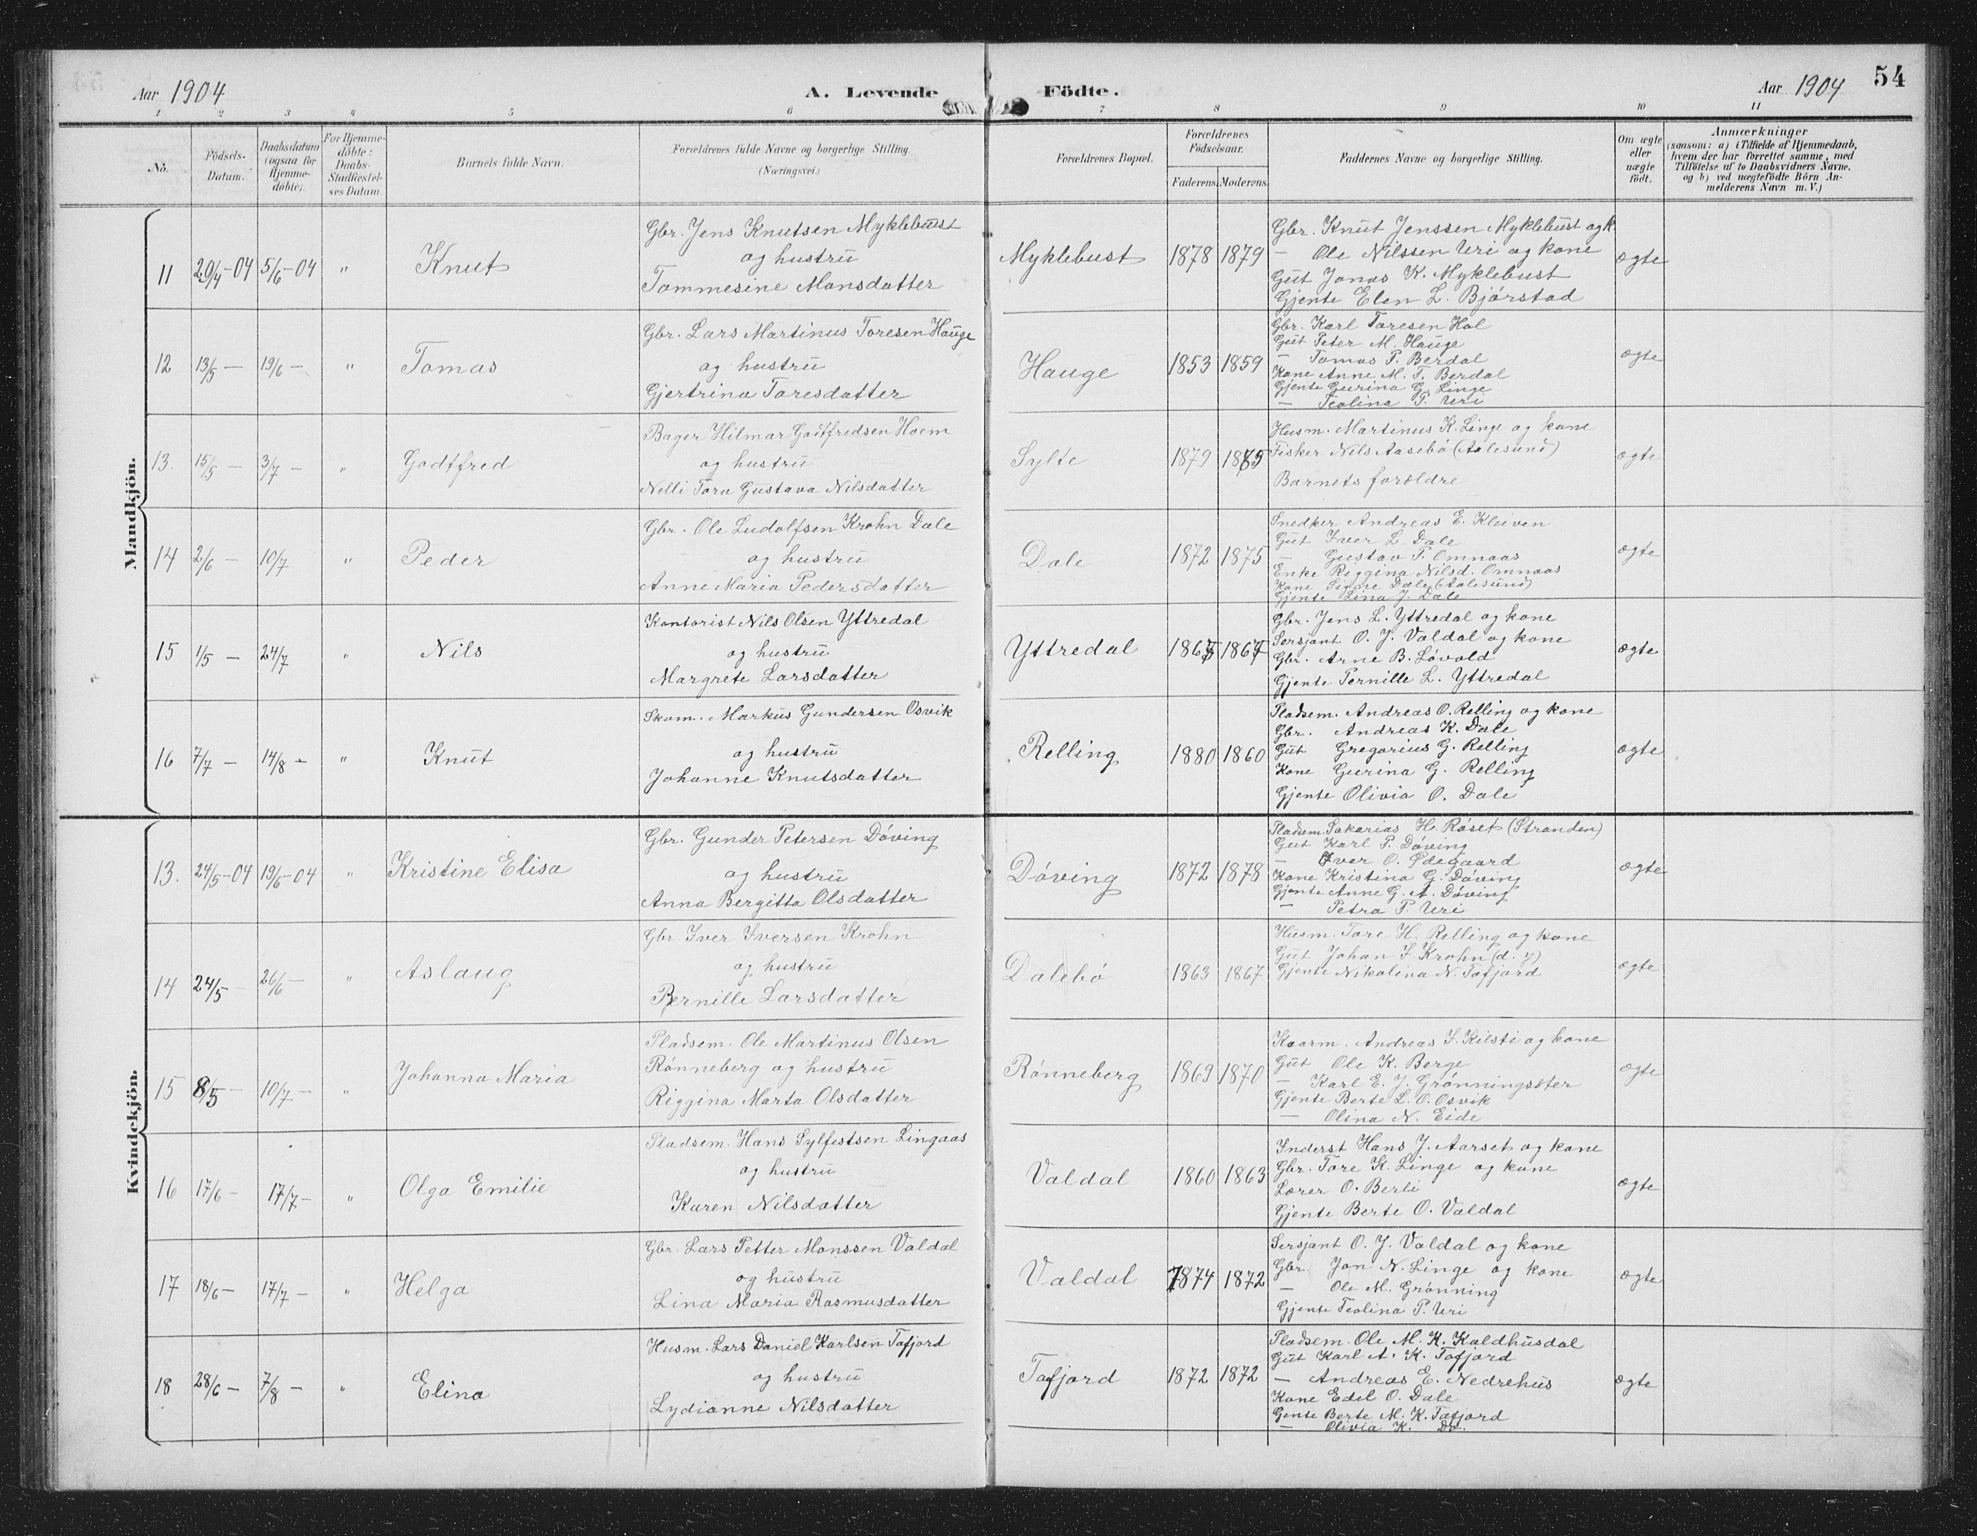 Aar 1904 A. Levende Födte. Aar 1904 54
1 2 3 4 5 6 7 8 9 10 11
No. Födsels-Datum. Daabsdatum (ogsaa for Hjemmedöbte). For Hjemmedöbte: Daabs-Stadfæstelses Datum. Barnets fulde Navn. Forældrenes fulde Navne og borgerlige Stilling (Næringsvei.) Forældrenes Bopæl. Forældrenes Födselsaar. Faderens. Moderens. Faddernes Navne og borgerlige Stilling. Om ægte eller uægte födt. Anmærkninger (saasom: a) i Tilfælde af Hjemmedaab, hvem der har forrettet samme, med Tilföielse af to Daabsvidners Navne, og b) ved uægtefödte Börn Anmelderens Navn m. V.)
Mandkjön.
11 29/4-04 5/6-04 " Knut
Gbr. Jens Knutsen Myklebust
og hustru
Tommesine Monsdatter
Myklebust 1878 1879
Gbr. Knut Jenssen Myklebust og k
— Ole Nilssen Uri og kone
Gut Jonas K. Myklebust
Gjente Elen L. Bjørstad
ægte
12 13/5 — 19/6 — " Tomas
Gbr. Lars Martinus Toresen Hauge
og hustru
Gjertrina Toresdatter
Hauge 1853 1859
Gbr. Karl Toresen Hol
Gut Peter M. Hauge
— Tomas P. Berdal
Kone Anne M. T. Berdal
Gjente Gurina G. Linge
— Teolina P. Uri
ægte
13. 15/5 — 3/7 — " Godtfred
Bager Hilmar Godtfredsen Hoem
og hustru
Nelli Tora Gustava Nilsdatter
Sylte 1879 1885
Husm. Martinus K. Linge og kone
Fisker Nils Aasebö (Aalesund)
Barnets forældre
ægte
14 2/6 — 10/7 " Peder
Gbr. Ole Ludolfsen Krohn Dale
og hustru
Anne Maria Pedersdatter
Dale 1872 1875
Snedker Andreas E. Kleiven
Gut Iver L. Dale
— Gustav P. Omnaas
Enke Riggina Nilsd. Omnaas
Kone Signe Dale (Aalesund)
Gjente Lina J. Dale
ægte
15 1/5 — 24/7 " Nils
Kontorist Nils Olsen Yttredal
og hustru
Margrete Larsdatter
Yttredal
Gbr. Jens L. Yttredal og kone
Sersjant O. J. Valdal og kone
Gbr. Arne B. Løvold
Gjente Pernille L. Yttredal
ægte
16 7/7 — 14/8 — " Knut
Skom. Markus Gundersen Osvik
og hustru
Johanne Knutsdatter
Relling 1880 1860
Pladsem. Andreas O. Relling og kone
Gbr. Andreas K. Dale
Gut Gregorius G. Relling
Kone Gurina G. Relling
Gjente Olivia O. Dale
ægte
Kvindekjön.
13. 24/5-04 19/6-04 " Kristine Elisa
Gbr. Gunder Petersen Døving
og hustru
Anna Bergitta Olsdatter
Døving 1872 1878
Pladsem. Sakarias H. Røset (Stranden)
Gut Karl P. Døving
— Iver O. Ødegaard
Kone Kristina G. Døving
Gjente Anne G. A. Døving
— Petra P. Uri
ægte
14 24/5 — 26/6 — " Aslaug
Gbr Iver Iversen Krohn
og hustru
Pernille Larsdatter
Dalebø 1863 1867
Husm. Tore H. Relling og kone
Gut Johan I Krohn (d. y)
Gjente Nikolina N. Tafjord
ægte
15 8/5 10/7 — " Johanna Maria
Pladsem. Ole Martinus Olsen
Rønneberg og hustru
Riggina Marta Olsdatter
Rønneberg 1869 1870
Kaarm. Andreas I. Kilsti og kone
Gut Ole K. Berge
— Karl E. J. Grønningsæter
Gjente Berte L. O. Osvik
— Olina N. Eide
ægte
16 17/6 — 17/7 — " Olga Emilie
Pladsem. Hans Sylfestsen Lingaas
og hustru
Karen Nilsdatter
Valdal 1860 1863
Inderst Hans J. Aarset og kone
Gbr. Tore K. Linge og kone
Lærer O. Berli
Gjente Berte O. Valdal
ægte
17 18/6 — 17/7 — " Helga
Gbr. Lars Petter Monssen Valdal
og hustru
Lina Maria Rasmusdatter
Valdal 1874 1872
Sersjant O. J. Valdal og kone
Gbr. Jon N. Linge og kone
— Ole M. Grønning
Gjente Teolina P. Uri
ægte
18 28/6 — 7/8 — " Elina
Husm. Lars Daniel Karlsen Tafjord
og hustru
Lydianne Nilsdatter
Tafjord 1872 1872
Pladsem. Ole M. K. Kaldhusdal
Gut Karl A. K. Tafjord
— Andreas E. Nedrehus
Kone Edel O. Dale
Gjente Berte M. K. Tafjord
— Olivia K. Do.
ægte